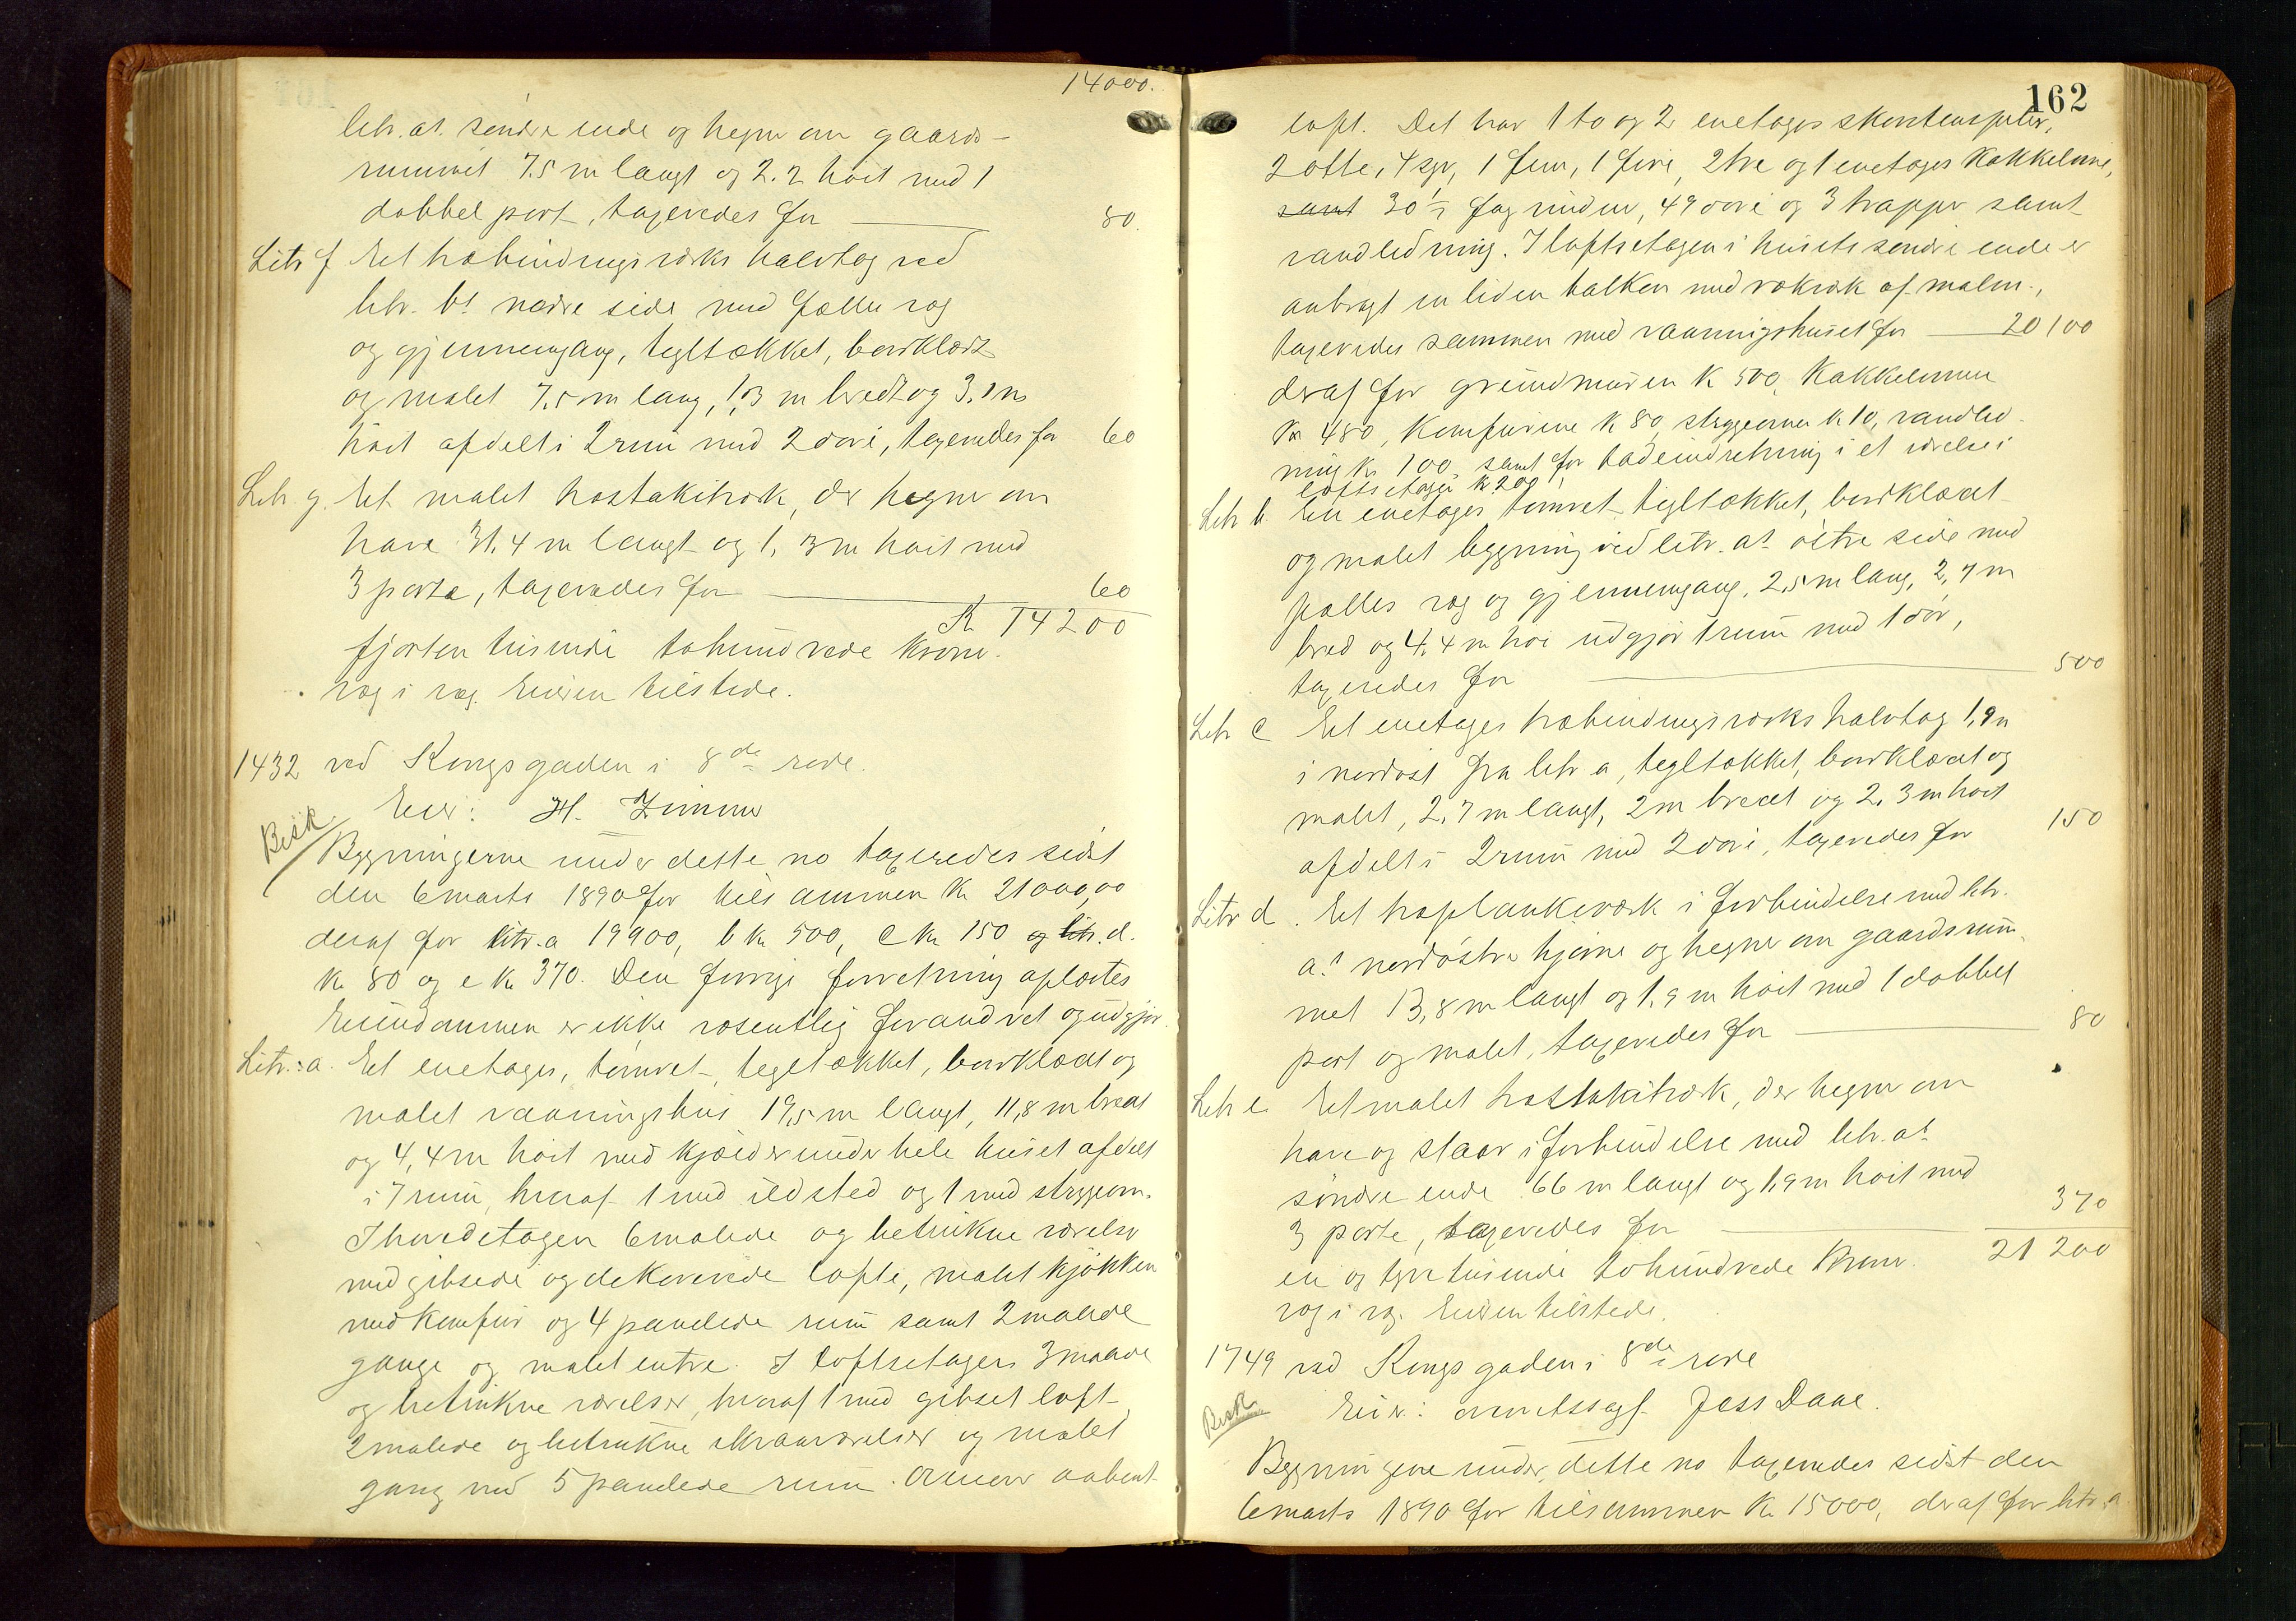 14000.
litr. a's søndre ende og hegner om gaards-
rummet 7.5 m langt og 2.2 høit med 1
dobbel port, taxeredes for 80.
Litr f Et træbindingsværks halvtag ved
litr. b's nedre side med fælles væg
og gjennemgang, tegltækket, bordklædt
og malet 7,5 m lang, 1,3 m bredt og 3.1 m
høit afdelt i 2 rum med 2 døre, taxeredes for 60
Litr. g. Et malet træstakitværk, der hegner om
have 31.4 m langt og 1,3 m høit med
3 porte, taxeredes for 60
Kr 14200
fjorten tusinde tohundrede kroner.
væg i væg. Eieren tilstede.
1432 ved Kongsgaden i 8de rode.
Eier: H. Zimmer
Besk.
Bygningerne under dette no taxeredes sidst
den 6 marts 1890 for tilsammen Kr 21000,00
deraf for litr. a 19900, b kr 500, c kr 150 og litr. d.
kr 80 og e kr 370. Den forrige forretning oplæstes
Eiendommen er ikke væsentlig forandret og udgjør
Litr.: a. Et enetages, tømret, tegltækket, bordklædt og
malet vaaningshus 19,5 m langt, 11,8 m bredt
og 4,4 m høit med kjælder under hele huset afdelt
i 7 rum, hvoraf 1 med ildsted og 1 med strygeovn.
I hovedetagen 6 malede og betrukne værelser
med gibsede og dekorerede lofte, malet kjøkken
med komfur og 4 panelede rum samt 2 malede
gange og malet entre. I loftsetagen 3 malede
og betrukne værelser, hvoraf 1 med gibset loft,
2 malede og betrukne skraaværelser og malet
gang med 5 panelede rum. Ovenover aabent
162
loft. Det har 1 to og 2 enetages skorstenspiber,
2 otte, 4 syv, 1 fem, 1 fire, 2 tre og 1 enetages kakkelovne,
samt 30 1/2 fag vinduer, 49 døre og 3 trapper samt
vandledning. I loftsetagen i husets søndre ende er
anbragt en liden balkon med rækværk af malm,
taxeredes sammen med vaaningshuset for 20100
deraf for grundmuren K 500, kakkelovnene
kr 480, komfurene k 80, strygeovnen k 10, vandled-
ning kr 100, samt for badeindretning i et værelse i
loftsetagen kr 200
Litr b. En enetages tømret tegltækket, bordklædt
og malet bygning ved litr. a's østre side med
fælles væg og gjennemgang, 2,5 m lang, 2,7 m
bred og 4.4 m høi udgjør 1 rum med 1 dør,
taxeredes for 500
Litr c Et enetages træbindingsværks halvtag 1,9 m
i nordøst fra litr a, tegltækket, bordklædt og
malet, 2,7 m langt, 2 m bredt og 2.3 m høit
afdelt i 2 rum med 2 døre, taxeredes for 150
Litr d. Et træplankeværk i forbindelse med litr.
a's nordøstre hjørne og hegner om gaardsrum-
met 13,8 m langt og 1.9 m høit med 1 dobbel
port og malet, taxeredes for 80
Litr e Et malet træstakitværk, der hegner om
have og staar i forbindelse med litr. a's
søndre ende 66 m langt og 1,9 m høit med
3 porte, taxeredes for 370
en og tyve tusinde tohundrede kroner. 21200
væg i væg. Eieren tilstede.
1749 ved Kongsgaden i 8de rode
Besk.
Eier: overretssagf. Jess Daae.
Bygningerne under dette no taxeredes sidst den
6 marts 1890 for tilsammen Kr 15000, deraf for litr. a